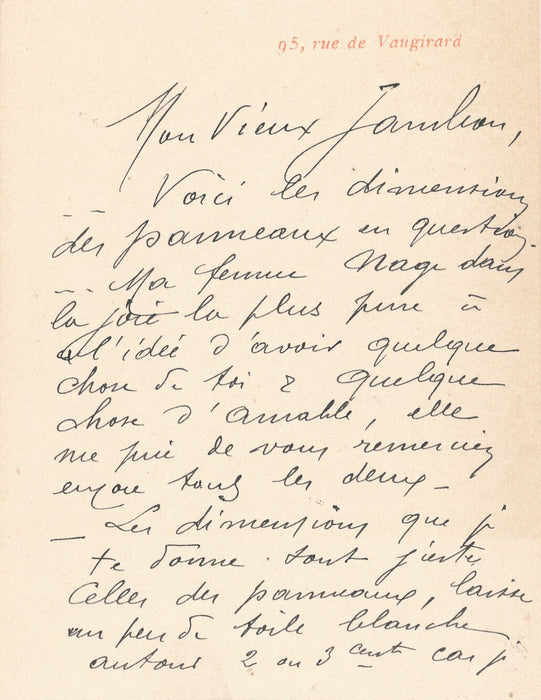 95, rue de Vaugirard
Mon Vieux Jambon,
Voici les dimensions
des panneaux en question
Ma femme nage dans
la joie la plus pure à
l'idée d'avoir quelque
chose de toi & quelque
chose d'Amable, elle
me prie de vous remercier
encore tous les deux _
_ Les dimensions que j
te donne sont juste
celles des panneaux, laisse
un peu de toile blanche
autour 2 ou 3 cent car j